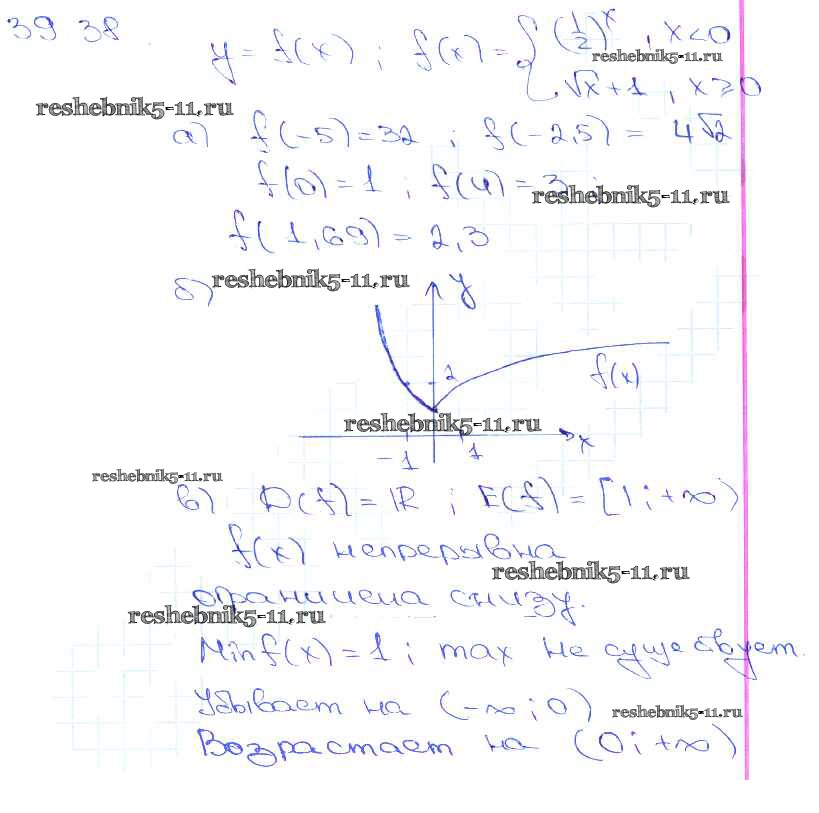 39 38.
y = f(x) ; f(x) = { (1/2)^x , x < 0
reshebnik5-11.ru
√x + 1 , x ≥ 0
reshebnik5-11.ru
а) f(-5) = 32 ; f(-2,5) = 4√2
f(0) = 1 ; f(4) = 3 ;
reshebnik5-11.ru
f(1,69) = 2,3
б) reshebnik5-11.ru
y
2
f(x)
reshebnik5-11.ru
x
-1 1
reshebnik5-11.ru
в) D(f) = R ; E(f) = [1 ; +∞)
f(x) непрерывна
reshebnik5-11.ru
ограничена снизу.
reshebnik5-11.ru
Min f(x) = 1 ; max не существует.
Убывает на (-∞ ; 0) reshebnik5-11.ru
Возрастает на (0 ; +∞)